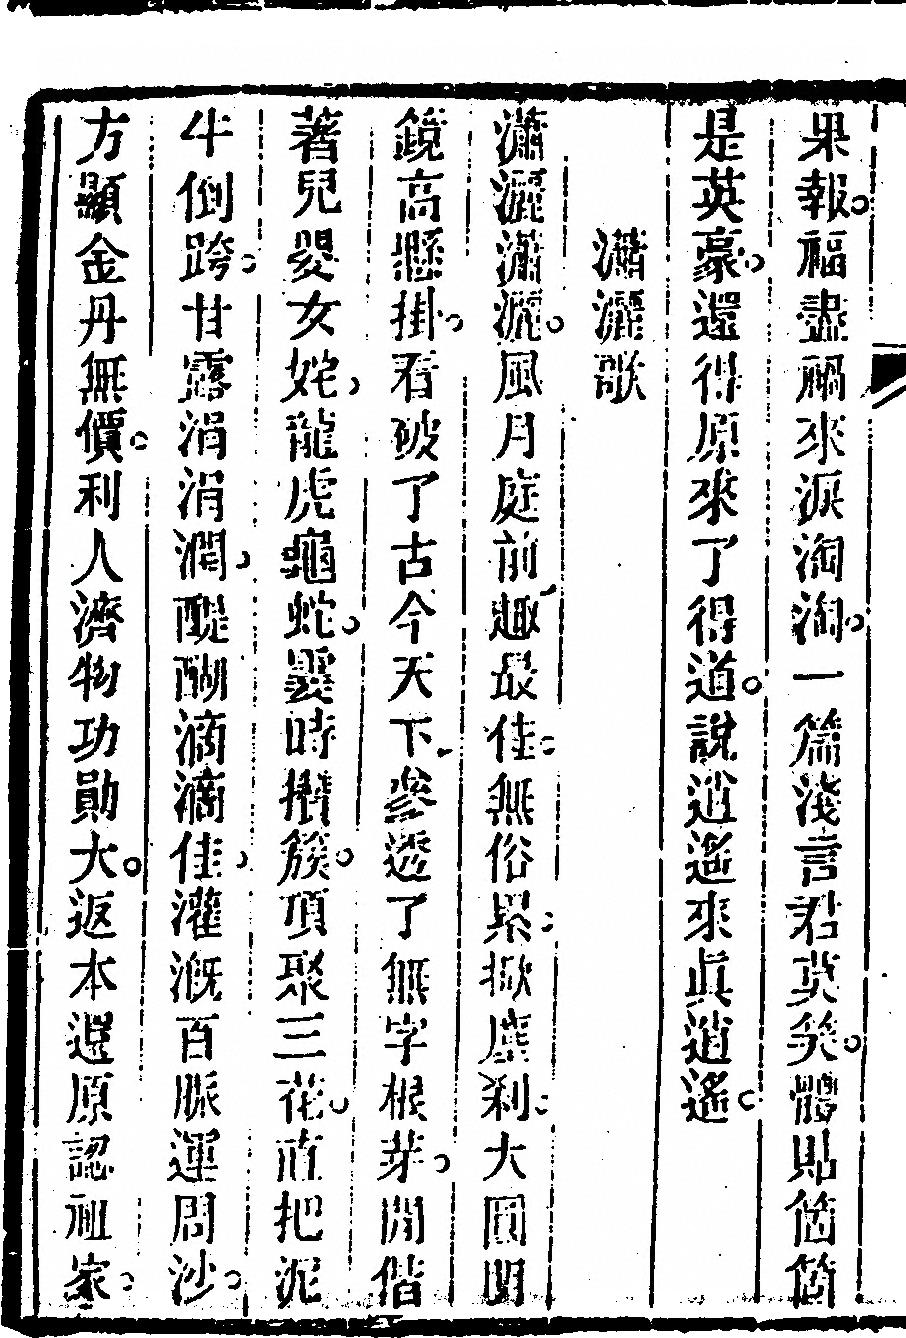 果報福盡禍來淚淘淘一篇淺言君莫笑體貼箇箇
是英豪還得原來了得道說逍遙來眞逍遙
瀟灑歌
瀟灑瀟灑風月庭前趣最佳無俗累掀塵刹大圓明
鏡高懸掛看破了古今天下參透了無字根芽閒偕
著兒嬰女姹龍虎龜蛇霎時攢簇項聚三花直把泥
牛倒跨甘露涓涓潤醍醐滴滴佳灌溉百脈運周沙
方顯金丹無價利人濟物功勛大返本還原認祖家